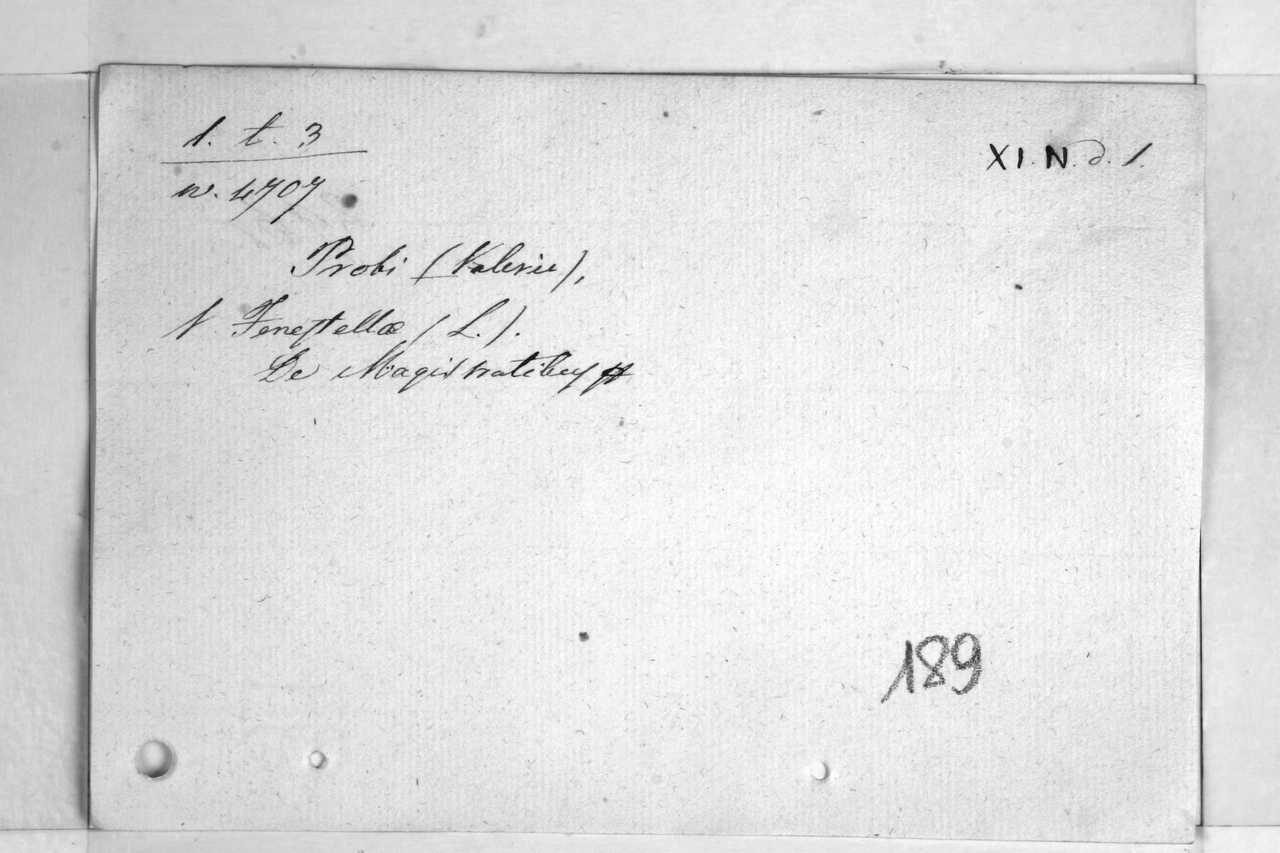 1. t. 3
XI. N. d. 1.
n. 4707
Probi (Valerii),
v Fenestellæ (L.).
De Magistratibus
189